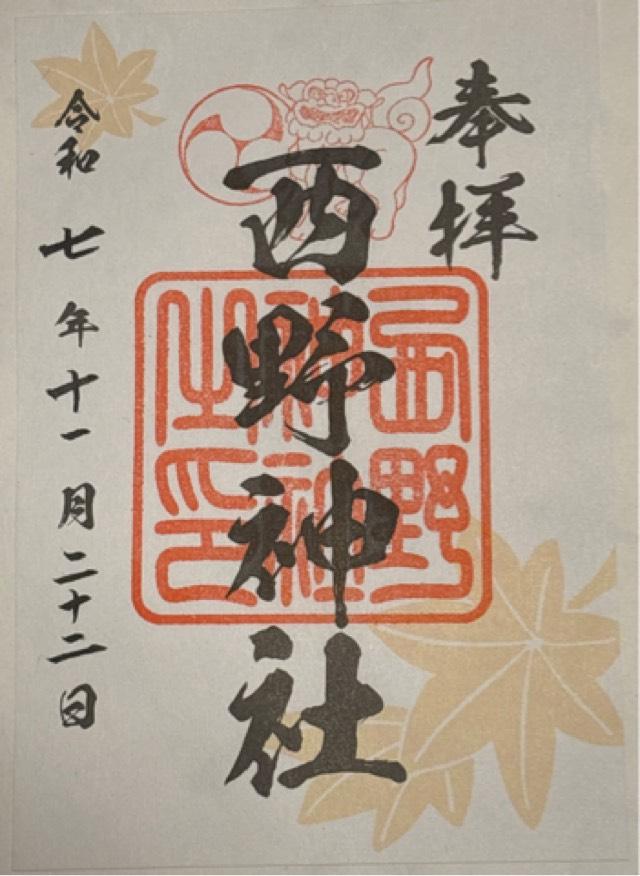 奉拝
西野神社
西野神社之印
令和七年十一月二十二日